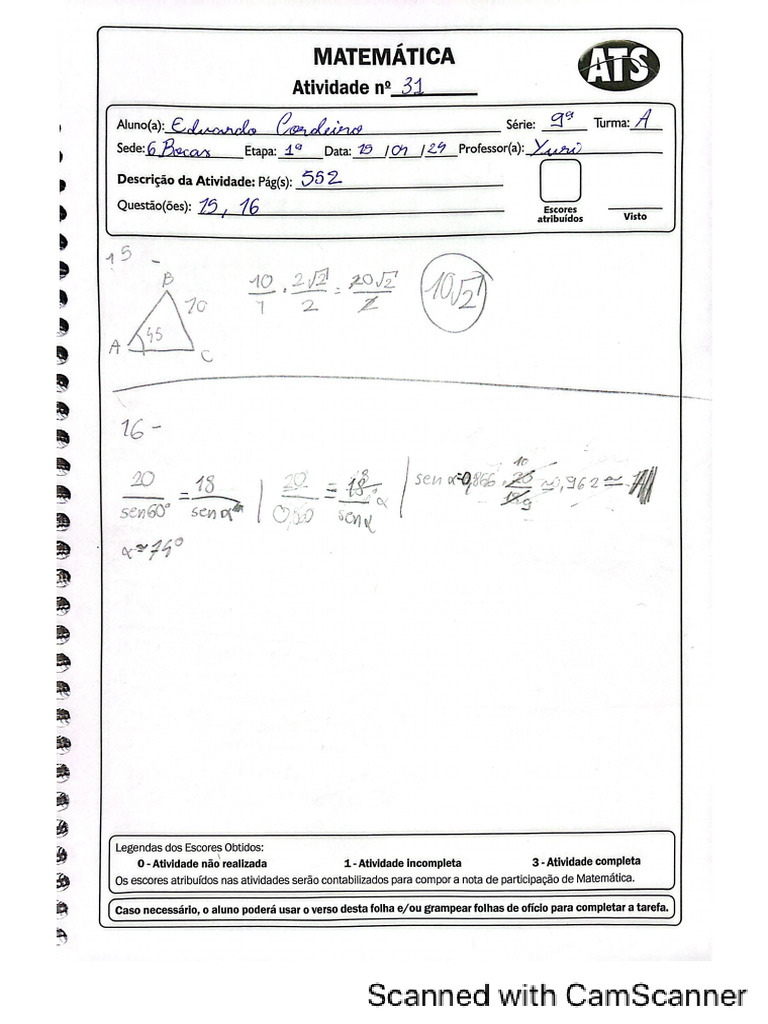 MATEMÁTICA
ATS
Atividade nº 31
Aluno(a): Eduardo Cordeiro Série: 9ª Turma: A
Sede: 6 Bocas Etapa: 1ª Data: 19 /04 /24 Professor(a): Yuri
Descrição da Atividade: Pág(s): 552
Questão(ões): 15, 16
Escores atribuídos
Visto
15 -
B
10
45
A
C
10/1 · 2√2/2 = 20√2/2 10√2
16 -
20/sen60° = 18/sen α | 20/ = 18/sen α | sen α = 0,866 ·
α ≈ 74°
Legendas dos Escores Obtidos:
0 - Atividade não realizada 1 - Atividade incompleta 3 - Atividade completa
Os escores atribuídos nas atividades serão contabilizados para compor a nota de participação de Matemática.
Caso necessário, o aluno poderá usar o verso desta folha e/ou grampear folhas de ofício para completar a tarefa.
Scanned with CamScanner